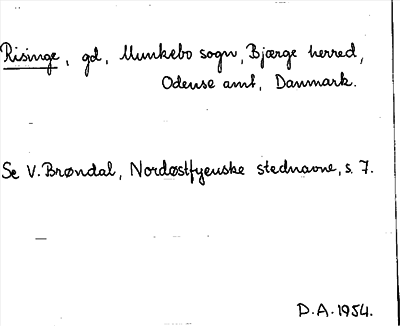 Risinge, gd, Munkebo sogn, Bjærge herred,
Odense amt, Danmark.
Se V. Brøndal, Nordøstfyenske stednavne, s. 7.
D.A. 1954.